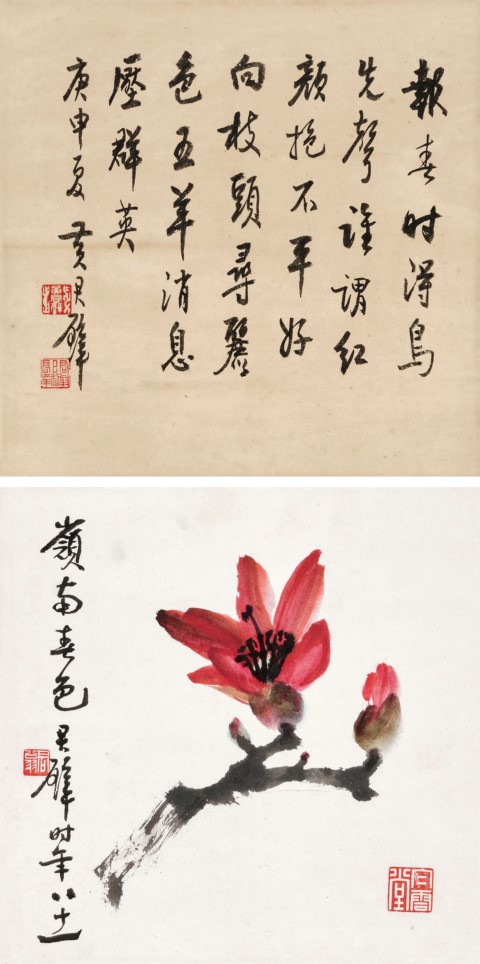 報春时得鳥
先聲誰謂紅
顏抱不平好
向枝頭尋
色五羊消息
壓群英
庚申夏 黃君璧
嶺南春色 君璧时年八十一
白雲堂